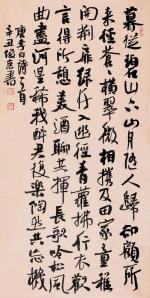 暮從碧山下山月隨人歸卻顧所
來徑蒼〻橫翠微相攜及田家童稚
開荊扉綠竹入幽徑青蘿拂行衣歡
言得所憩美酒聊共揮長歌吟松風
曲盡河星稀我醉君復樂陶然共忘機
李白詩
辛丑 書